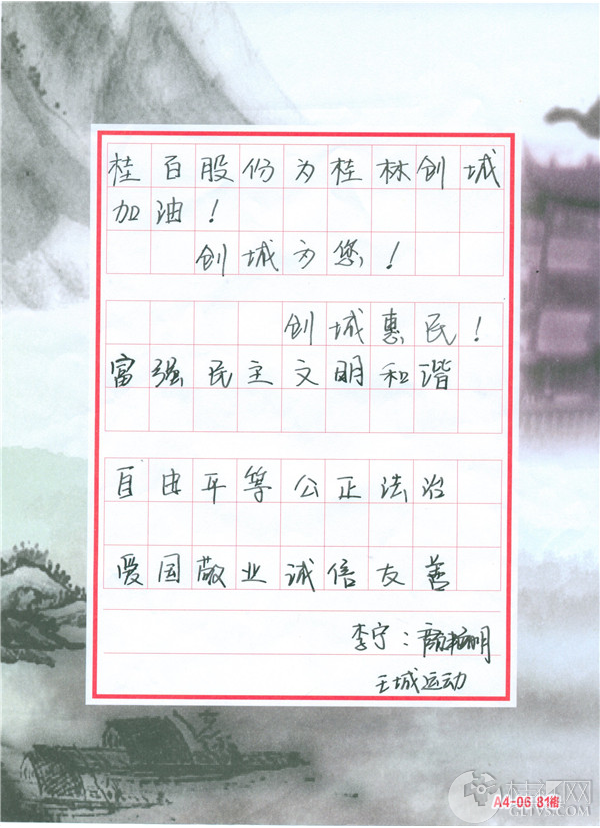 桂百股份为桂林创城
加油！
创城为您！
创城惠民！
富强民主文明和谐
自由平等公正法治
爱国敬业诚信友善
李宁：
王城运动
A4-06 81格
桂江网
GLTVS.COM